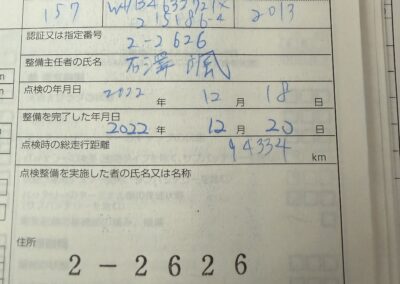 157 2013
215186-4
認証又は指定番号
2-2626
整備主任者の氏名
石澤 颯
点検の年月日
2022 年 12 月 18 日
整備を完了した年月日
2022 年 12 月 20 日
点検時の総走行距離
94334 km
点検整備を実施した者の氏名又は名称
住所
2-2626